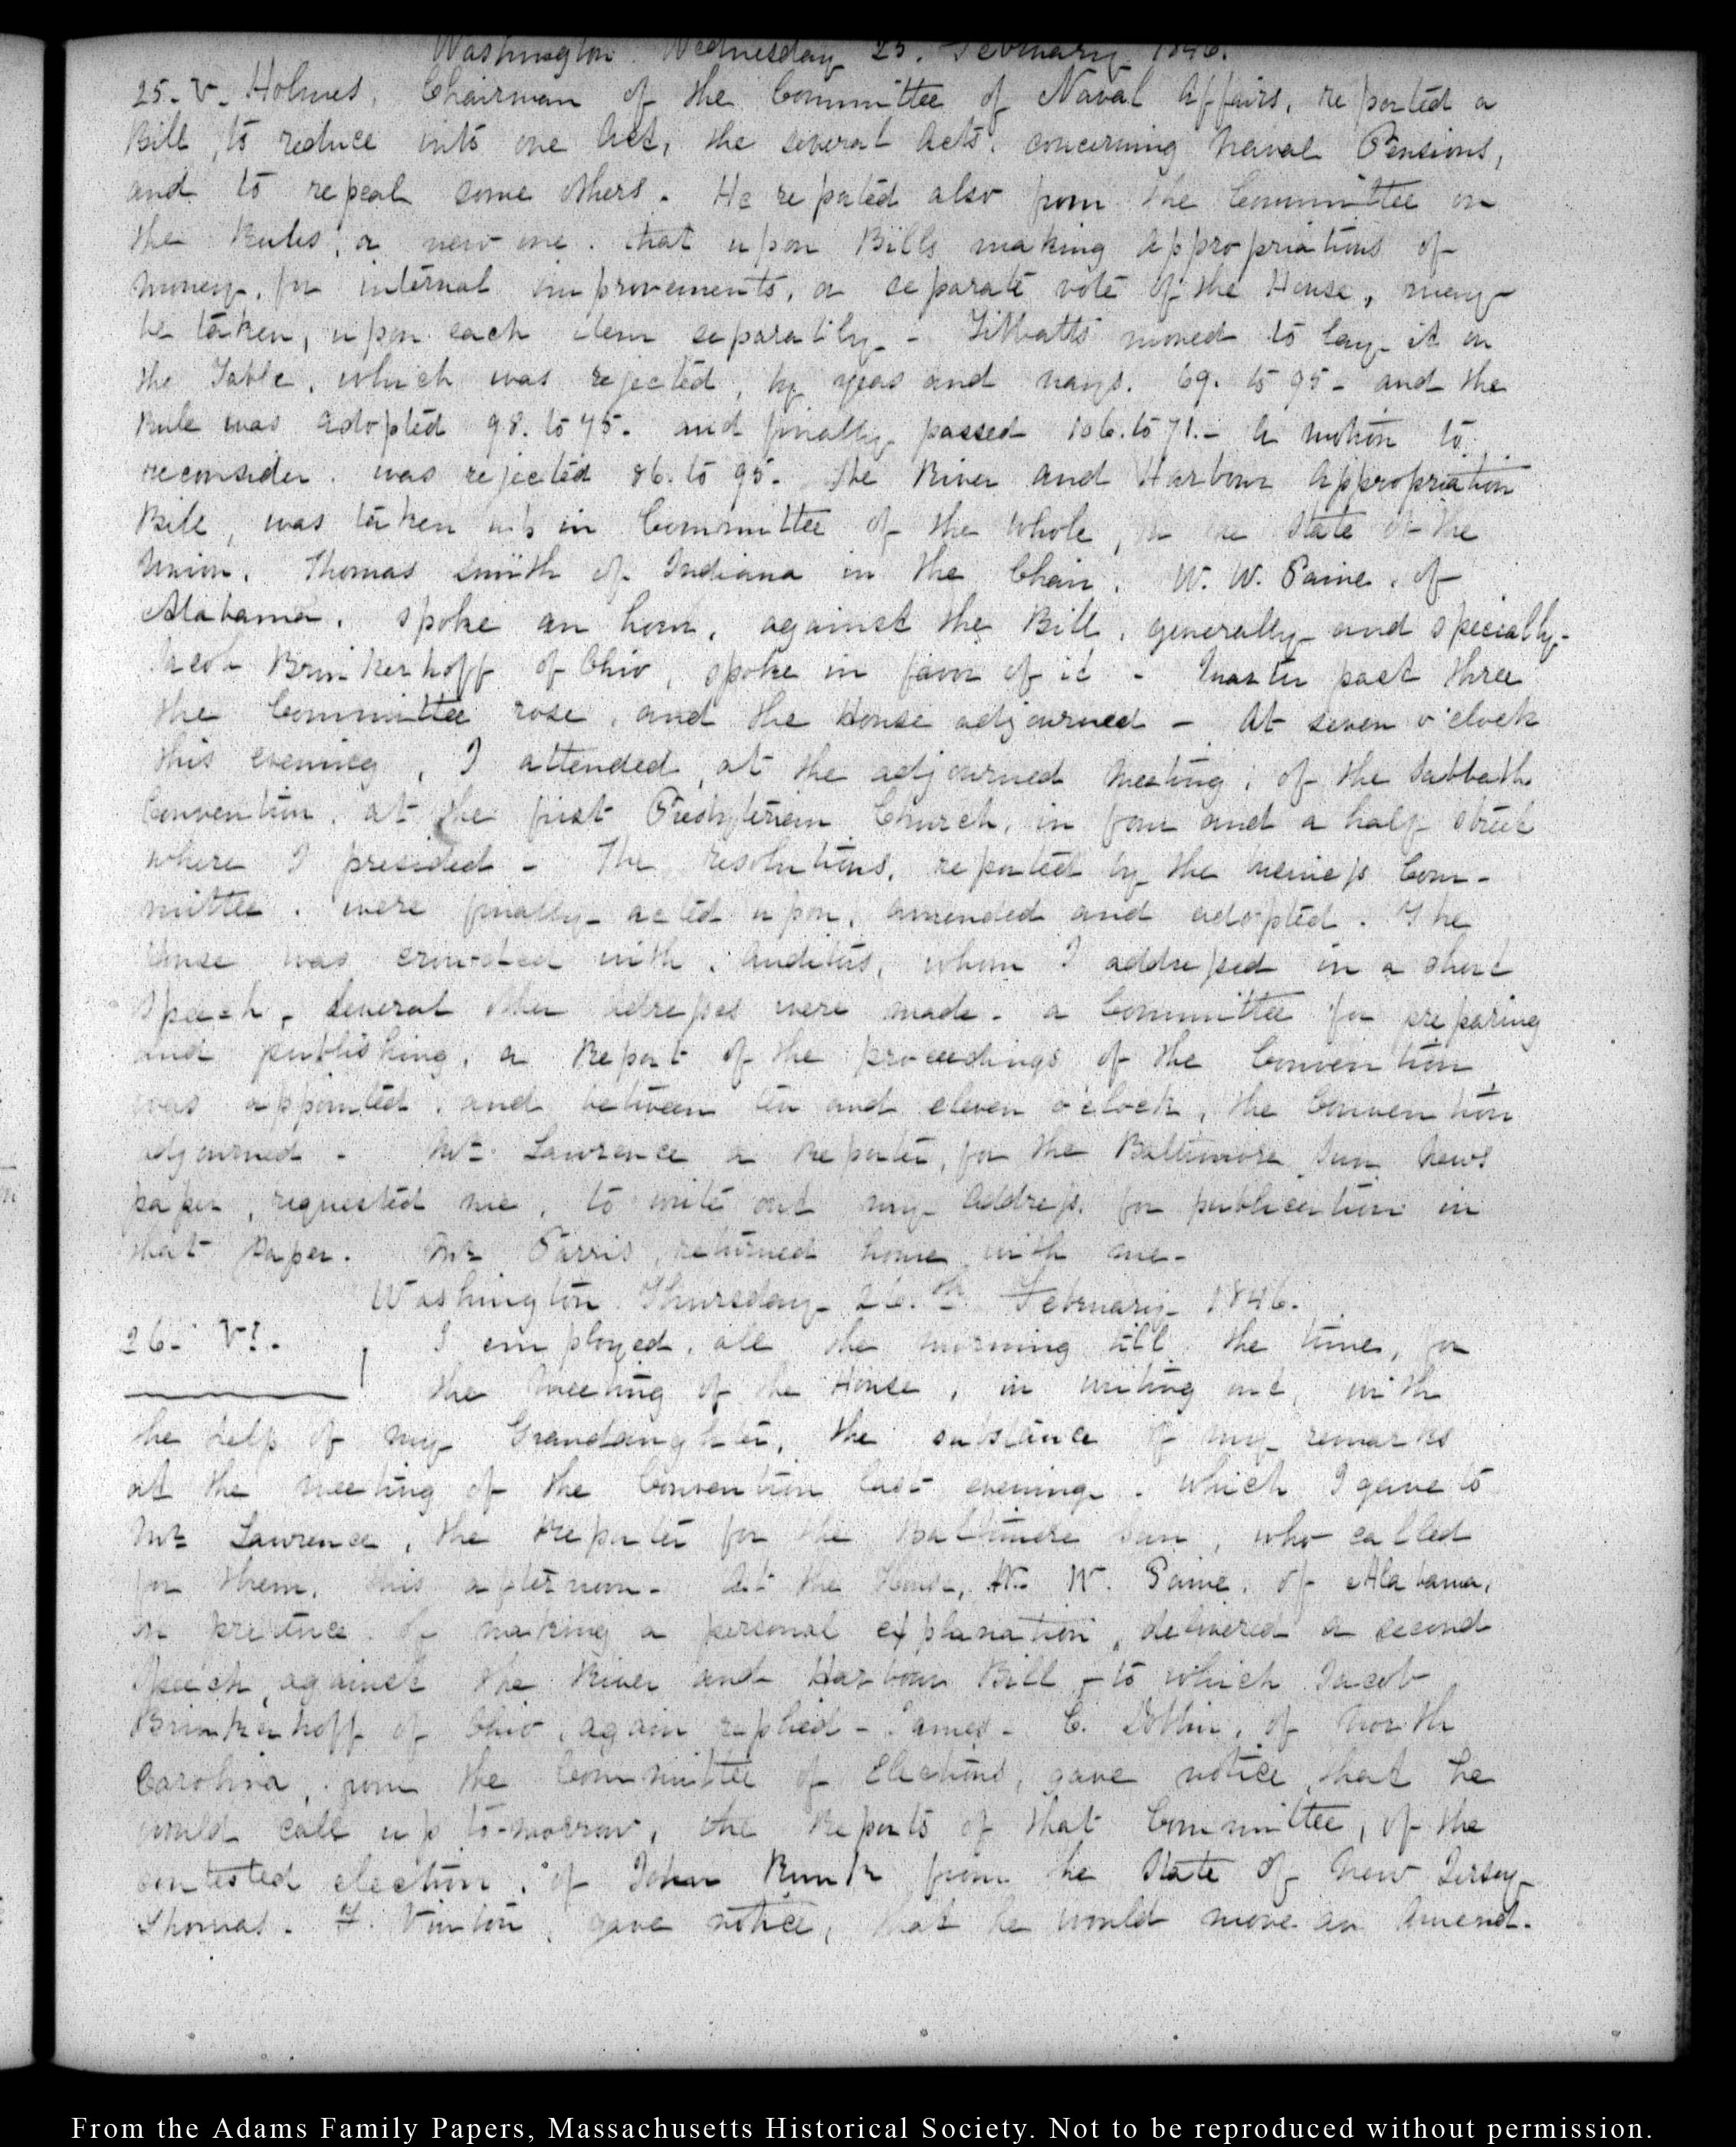 Washington Wednesday 25. February 1846.
25. V. Holmes, Chairman of the Committee of Naval Affairs, reported a
Bill, to reduce into one Act, the several Acts, concerning Naval Pensions,
and to repeal some others. He reported also from the Committee on
the Rules, a new one. that upon Bills making appropriations of
money, for internal improvements, a separate vote of the House, may
be taken, upon each item separately. - Tibbatts moved to lay it on
the Table, which was rejected, by yeas and nays. 69. to 95 - and the
Rule was adopted 98. to 75. and finally passed 106. to 71. - A motion to
reconsider. was rejected 86. to 95. The River and Harbour Appropriation
Bill, was taken up in Committee of the whole, on the State of the
Union. Thomas Smith of Indiana in the Chair. W. W. Paine, of
Alabama. spoke an hour, against the Bill, generally and specially -
Jacob Brinkerhoff of Ohio, spoke in favor of it - Quarter past three
the Committee rose, and the House adjourned - At seven o'clock
this evening, I attended, at the adjourned meeting, of the Sabbath
Convention, at the first Presbyterian Church, in four and a half street
where I presided - The resolutions, reported by the business Com-
mittee. were finally acted upon, amended and adopted. The
house was crowded with auditors, whom I addressed in a short
speech, several other addresses were made. a Committee for preparing
and publishing, a Report of the proceedings of the Convention
was appointed, and between ten and eleven o'clock, the Convention
adjourned - Mr. Lawrence a Reporter, for the Baltimore Sun News
paper, requested me, to write out my address for publication in
that paper. Mr Farris, returned home with me.
Washington Thursday 26.th February 1846.
26. VI. I employed, all the morning till the time, for
the meeting of the House, in writing out, with
the help of my Grandaughter, the substance of my remarks
at the meeting of the Convention last evening. which I gave to
Mr Lawrence, the Reporter for the Baltimore Sun, who called
for them, this afternoon. At the House, W. W. Paine, of Alabama,
in pretence of making a personal explanation, delivered a second
speech, against the River and Harbour Bill - to which Jacob
Brinkerhoff of Ohio, again replied - James C. Dobbin, of North
Carolina, from the Committee of Elections, gave notice, that he
would call up to-morrow, the Reports of that Committee, of the
contested election, of John Runk from the State of New Jersey
Thomas. F. Vinton, gave notice, that he would move an Amend-
From the Adams Family Papers, Massachusetts Historical Society. Not to be reproduced without permission.